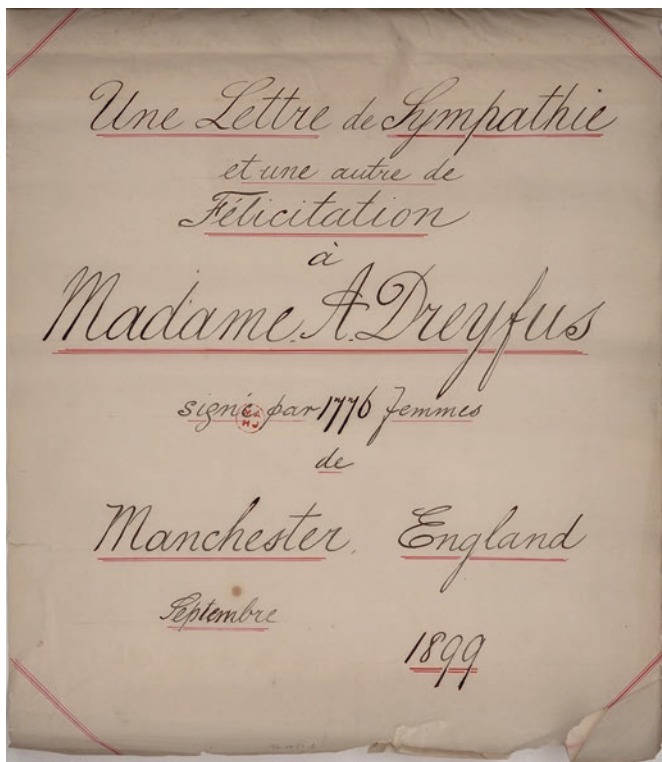 Une Lettre de Sympathie
et une autre de
Félicitation
à
Madame. A. Dreyfus
signé par 1776 femmes
de
Manchester, England
Septembre
1899